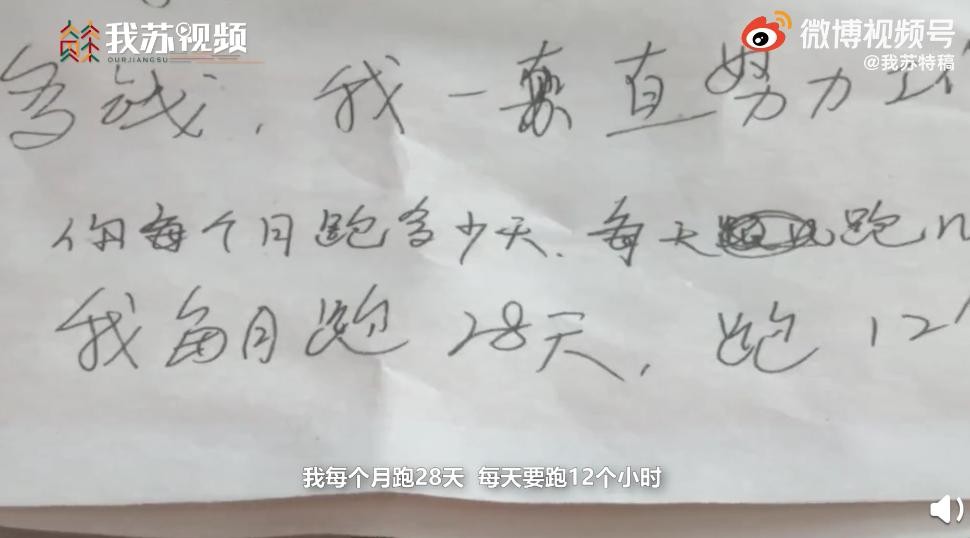 我苏视频
OURJIANGSU
微博视频号
@我苏特稿
多钱，我一直努力工
你每个月跑多少天、每天跑
我每月跑28天，跑12
我每个月跑28天 每天要跑12个小时